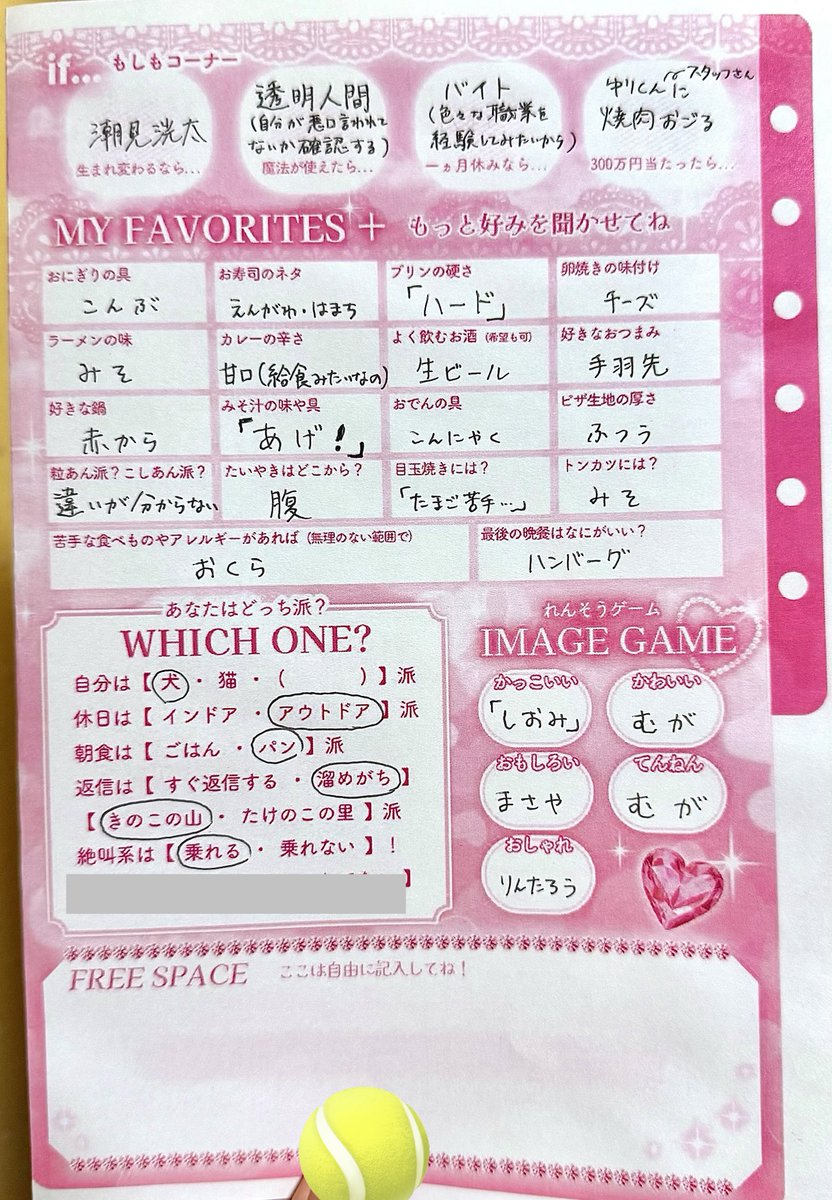 if... もしもコーナー
潮見洸太
生まれ変わるなら...
透明人間
(自分が悪口言われて
ないか確認する)
魔法が使えたら...
バイト
(色々な職業を
経験してみたいから)
一ヵ月休みなら...
スタッフさん
くんに
焼肉おごる
300万円当たったら...
MY FAVORITES + もっと好みを聞かせてね
おにぎりの具
こんぶ
お寿司のネタ
えんがわ・はまち
プリンの硬さ
「ハード」
卵焼きの味付け
チーズ
ラーメンの味
みそ
カレーの辛さ
甘口(給食みたいなの)
よく飲むお酒(希望も可)
生ビール
好きなおつまみ
手羽先
好きな鍋
赤から
みそ汁の味や具
「あげ!」
おでんの具
こんにゃく
ピザ生地の厚さ
ふつう
粒あん派?こしあん派?
違いが分からない
たいやきはどこから?
腹
目玉焼きには?
「たまご苦手…」
トンカツには?
みそ
苦手な食べものやアレルギーがあれば(無理のない範囲で)
おくら
最後の晩餐はなにがいい?
ハンバーグ
あなたはどっち派?
WHICH ONE?
自分は【犬・猫・( )】派
休日は【インドア・アウトドア】派
朝食は【ごはん・パン】派
返信は【すぐ返信する・溜めがち】
【きのこの山・たけのこの里】派
絶叫系は【乗れる・乗れない】!
】
れんそうゲーム
IMAGE GAME
かっこいい
「しおみ」
かわいい
むが
おもしろい
まさや
てんねん
むが
おしゃれ
りんたろう
FREE SPACE ここは自由に記入してね!